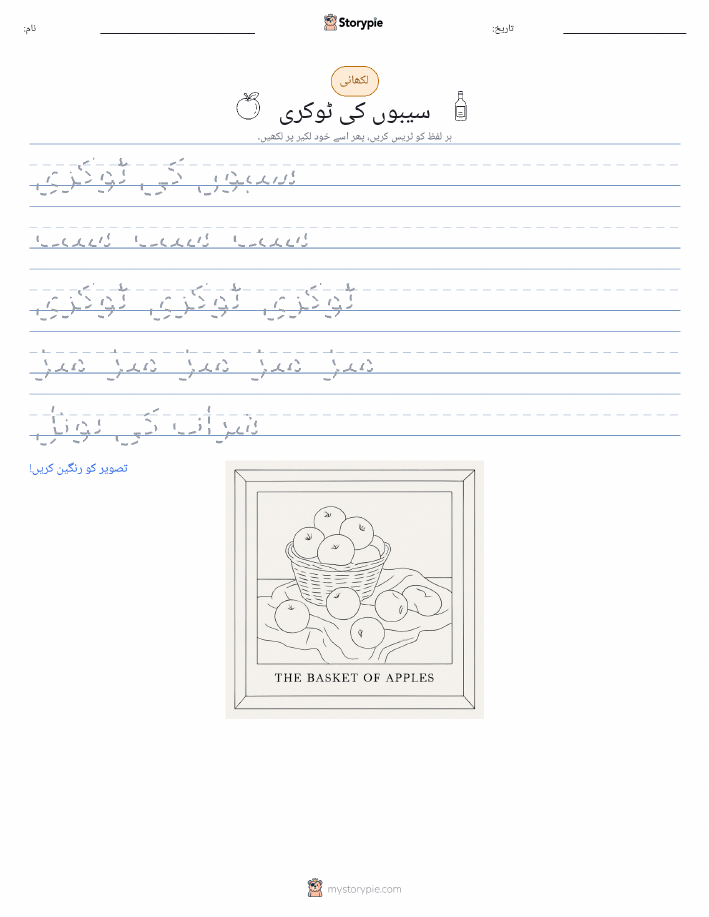 نام:
Storypie
تاریخ:
لکھائی
سیبوں کی ٹوکری
ہر لفظ کو ٹریس کریں، پھر اسے خود لکیر پر لکھیں۔
سیبوں کی ٹوکری
سیب سیب سیب
ٹوکری ٹوکری ٹوکری
میز میز میز میز میز
شراب کی بوتل
تصویر کو رنگین کریں!
THE BASKET OF APPLES
mystorypie.com